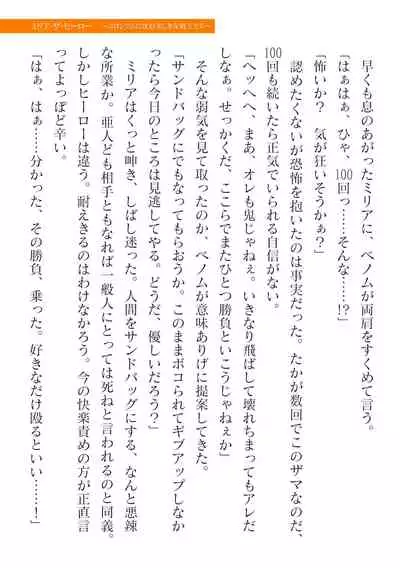 ミリア・ザ・ヒーロー
早くも息のあがったミリアに、ベノムが両肩をすくめて言う。
「はぁはぁ、ひゃ、100回っ……そんな……!?」
「怖いか？　気が狂いそうかぁ？」
認めたくないが恐怖を抱いたのは事実だった。たかが数回でこのザマなのだ、
100回も続いたら正気でいられる自信がない。
「ヘッヘへ、まあ、オレも鬼じゃねぇ。いきなり飛ばして壊れちまってもアレだ
なぁ。せっかくだ、ここらでまたひとつ勝負といこうじゃねぇか」
そんな弱気を見て取ったのか、ベノムが意味ありげに提案してきた。
「サンドバッグにでもなってもらおうか。このままボコられてギブアップしなか
ったら今日のところは見逃してやる。どうだ、優しいだろう？」
ミリアはくっと呻き、しばし迷った。人間をサンドバッグにする、なんと悪辣
な所業か。亜人ども相手ともなれば一般人にとっては死ねと言われるのと同義。
しかしヒーローは違う。耐えきるのはわけなかろう。今の快楽責めの方が正直言
ってよっぽど辛い。
「はぁ、はぁ……分かった、その勝負、乗った。好きなだけ殴るといい……！」